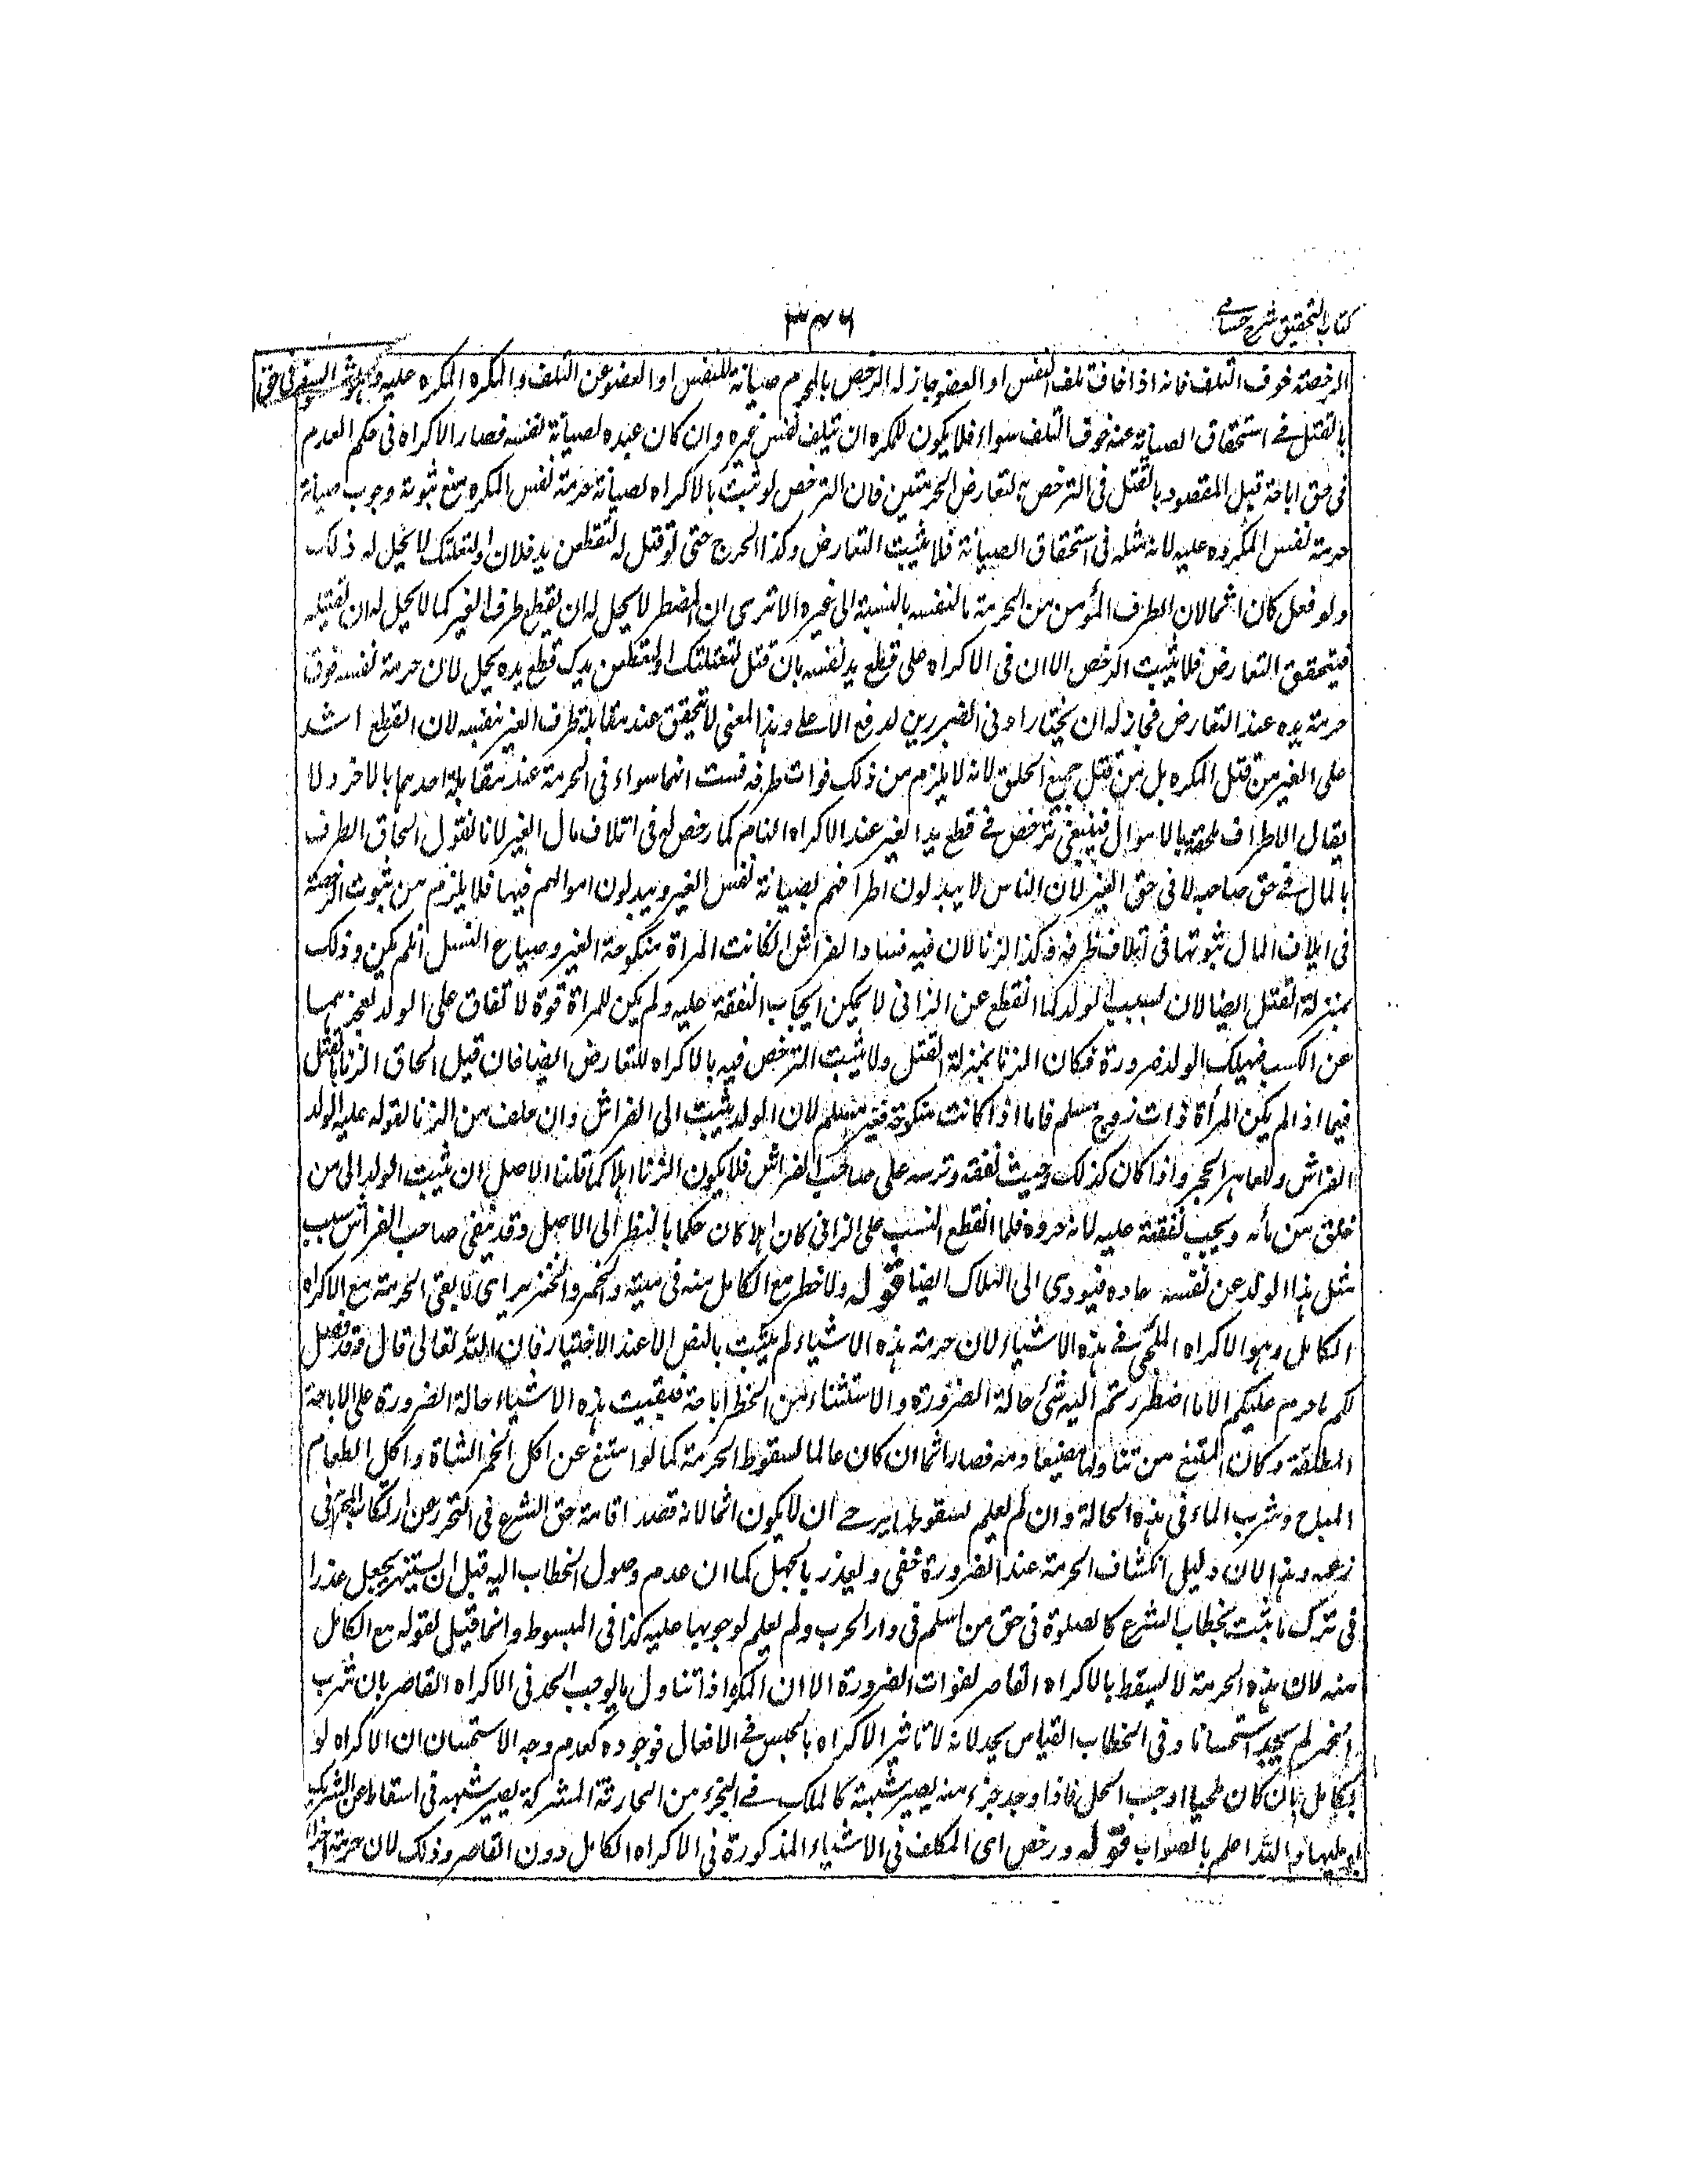 كتاب التحقيق شرح حسامى
۳۴۶
الرخصة خوف التلف فانه اذا خاف تلف النفس او العضو جاز له الترخص بالمحرم صيانة للنفس او العضو عن التلف والمكره المكره عليه
بالقتل فے استحقاق الصيانة عند خوف التلف سواء فلا يكون للمكره ان يتلف نفس غيره وان كان عبده لصيانة نفسه فصار الاكراه فى حكم العدم
فى حق اباحة قتل المقصود بالقتل فى الترخص به لتعارض الحرمتين فان الترخص لو ثبت بالاكراه لصيانة حرمة نفس المكره منع ثبوته وجوب صيانة
حرمة نفس المكره عليه لانه مثله فى استحقاق الصيانة فلا يثبت التعارض وكذا الجرح حتى لو قيل له لتقطعن يد فلان او لنقتلنك لا يحل له ذلك
ولو فعل كان اثما لان الطرف المؤمن من الحرمة ما لنفسه بالنسبة الى غيره الا ترى ان المضطر لا يحل له ان يقطع طرف الغير كما لا يحل له ان يقتله
فيتحقق التعارض فلا يثبت الرخص الا ان فى الاكراه على قطع يد نفسه بان قيل لنقتلنك او لتقطعن يدك قطع يده يحل لان حرمة نفسه فوق
حرمة يده عند التعارض فجاز له ان يختار ادنى الضررين لدفع الاعلى وهذا المعنى لا يتحقق عند مقابلة طرف الغير بنفسه لان القطع اشد
على الغير من قتل المكره بل من قتل جميع الخلق لانه لا يلزم من ذلك فوات طرفه فثبت انهما سواء فى الحرمة عند مقابلة احدهما بالاخر ولا
يقال الاطراف ملحقة بالاموال فينبغى ترخص فے قطع يد الغير عند الاكراه التام كما رخص له فى اتلاف مال الغير لانا نقول الحاق الطرف
بالمال فے حق صاحبه لا فى حق الغير لان الناس لا يبذلون اطرافهم لصيانة نفس الغير ويبذلون اموالهم فيها فلا يلزم من ثبوت الرخصة
فى اتلاف المال ثبوتها فى اتلاف طرفه وكذا الزنا لان فيه فساد الفراش ان كانت المراة منكوحة الغير وضياع النسل ان لم يكن وذلك
بمنزلة القتل ايضا لان نسب الولد لما انقطع عن الزانى لا يمكن ايجاب النفقة عليه ولم يكن للمراة قوة لانفاق على الولد لعجزها
عن الكسب فيهلك الولد ضرورة فكان الزنا بمنزلة القتل ولا يثبت الترخص فيه بالاكراه للتعارض ايضا فان قيل الحاق الزنا بالقتل
فيما اذا لم يكن المرأة ذات زوج مسلم فاما اذا كانت منكوحة فغير مسلم لان الولد يثبت الى الفراش وان علقت من الزنا لقوله عليه الولد
الفراش وللعاهر الحجر واذا كان كذلك وجبت نفقته وتربيته على صاحب الفراش فلا يكون الزنا اهلاكا قلنا الاصل ان يثبت الولد الى من
خلق من مائه ويجب نفقته عليه لانه جزوه فلما انقطع النسب على الزانى كان اهلاكا حكما بالنظر الى الاصل وقد ينفى صاحب الفراش نسب
مثل هذا الولد عن نفسه عادة فيودى الى الهلاك ايضا قوله ولا حظر مع الكامل منه فى ميتة والخمر والخنزير اى لا يبقى الحرمة مع الاكراه
الكامل وهو الاكراه الملجى فے هذه الاشياء لان حرمة هذه الاشياء لم يثبت بالنص الا عند الاختيار فان الله تعالى قال وقد فصل
لكم ما حرم عليكم الا ما اضطررتم اليه ثنى حالة الضرورة والاستثناء من الحظر اباحة فبقيت هذه الاشياء حالة الضرورة على الاباحة
المطلقة وكان الممتنع من تناولها مضيعا دمه فصار اثما ان كان عالما لسقوط الحرمة كما لو امتنع عن اكل لحم الشاة واكل الطعام
المباح وشرب الماء فى هذه الحالة وان لم يعلم سقوطها يرجے ان لا يكون اثما لانه قصد اقامة حق الشرع فى التحرز عن ارتكاب المحرم فى
زعمه وهذا لان دليل انكشاف الحرمة عند الضرورة خفى وليعذر بالجهل كما ان عدم وصول الخطاب اليه قبل ان يشتهر يجعل عذرا
فى ترك ما ثبت بخطاب الشرع كالصلوة فى حق من اسلم فى دار الحرب ولم يعلم لوجوبها عليه كذا فى المبسوط وانما قيل لقوله مع الكامل
منه لان هذه الحرمة لا يسقط بالاكراه القاصر لفوات الضرورة الا ان المكره اذا تناول ما يوجب الحد فى الاكراه القاصر بان شرب
الخمر لم يحد استحسانا وفى الخطاب القياس يحد لانه لا تاثير الاكراه بالحبس فے الافعال فوجوده كعدمه وجه الاستحسان ان الاكراه لو
تكامل بان كان ملجيا اوجب الحل فاذا وجد جزء منه يصير شبهة كالملك فے الجزء من الجارية المشتركة يصير شبهة فى اسقاط عن الشريك
والله اعلم بالصواب قوله ورخص اى المكلف فى الاشياء المذكورة فى الاكراه الكامل دون القاصر وذلك لان حرمة